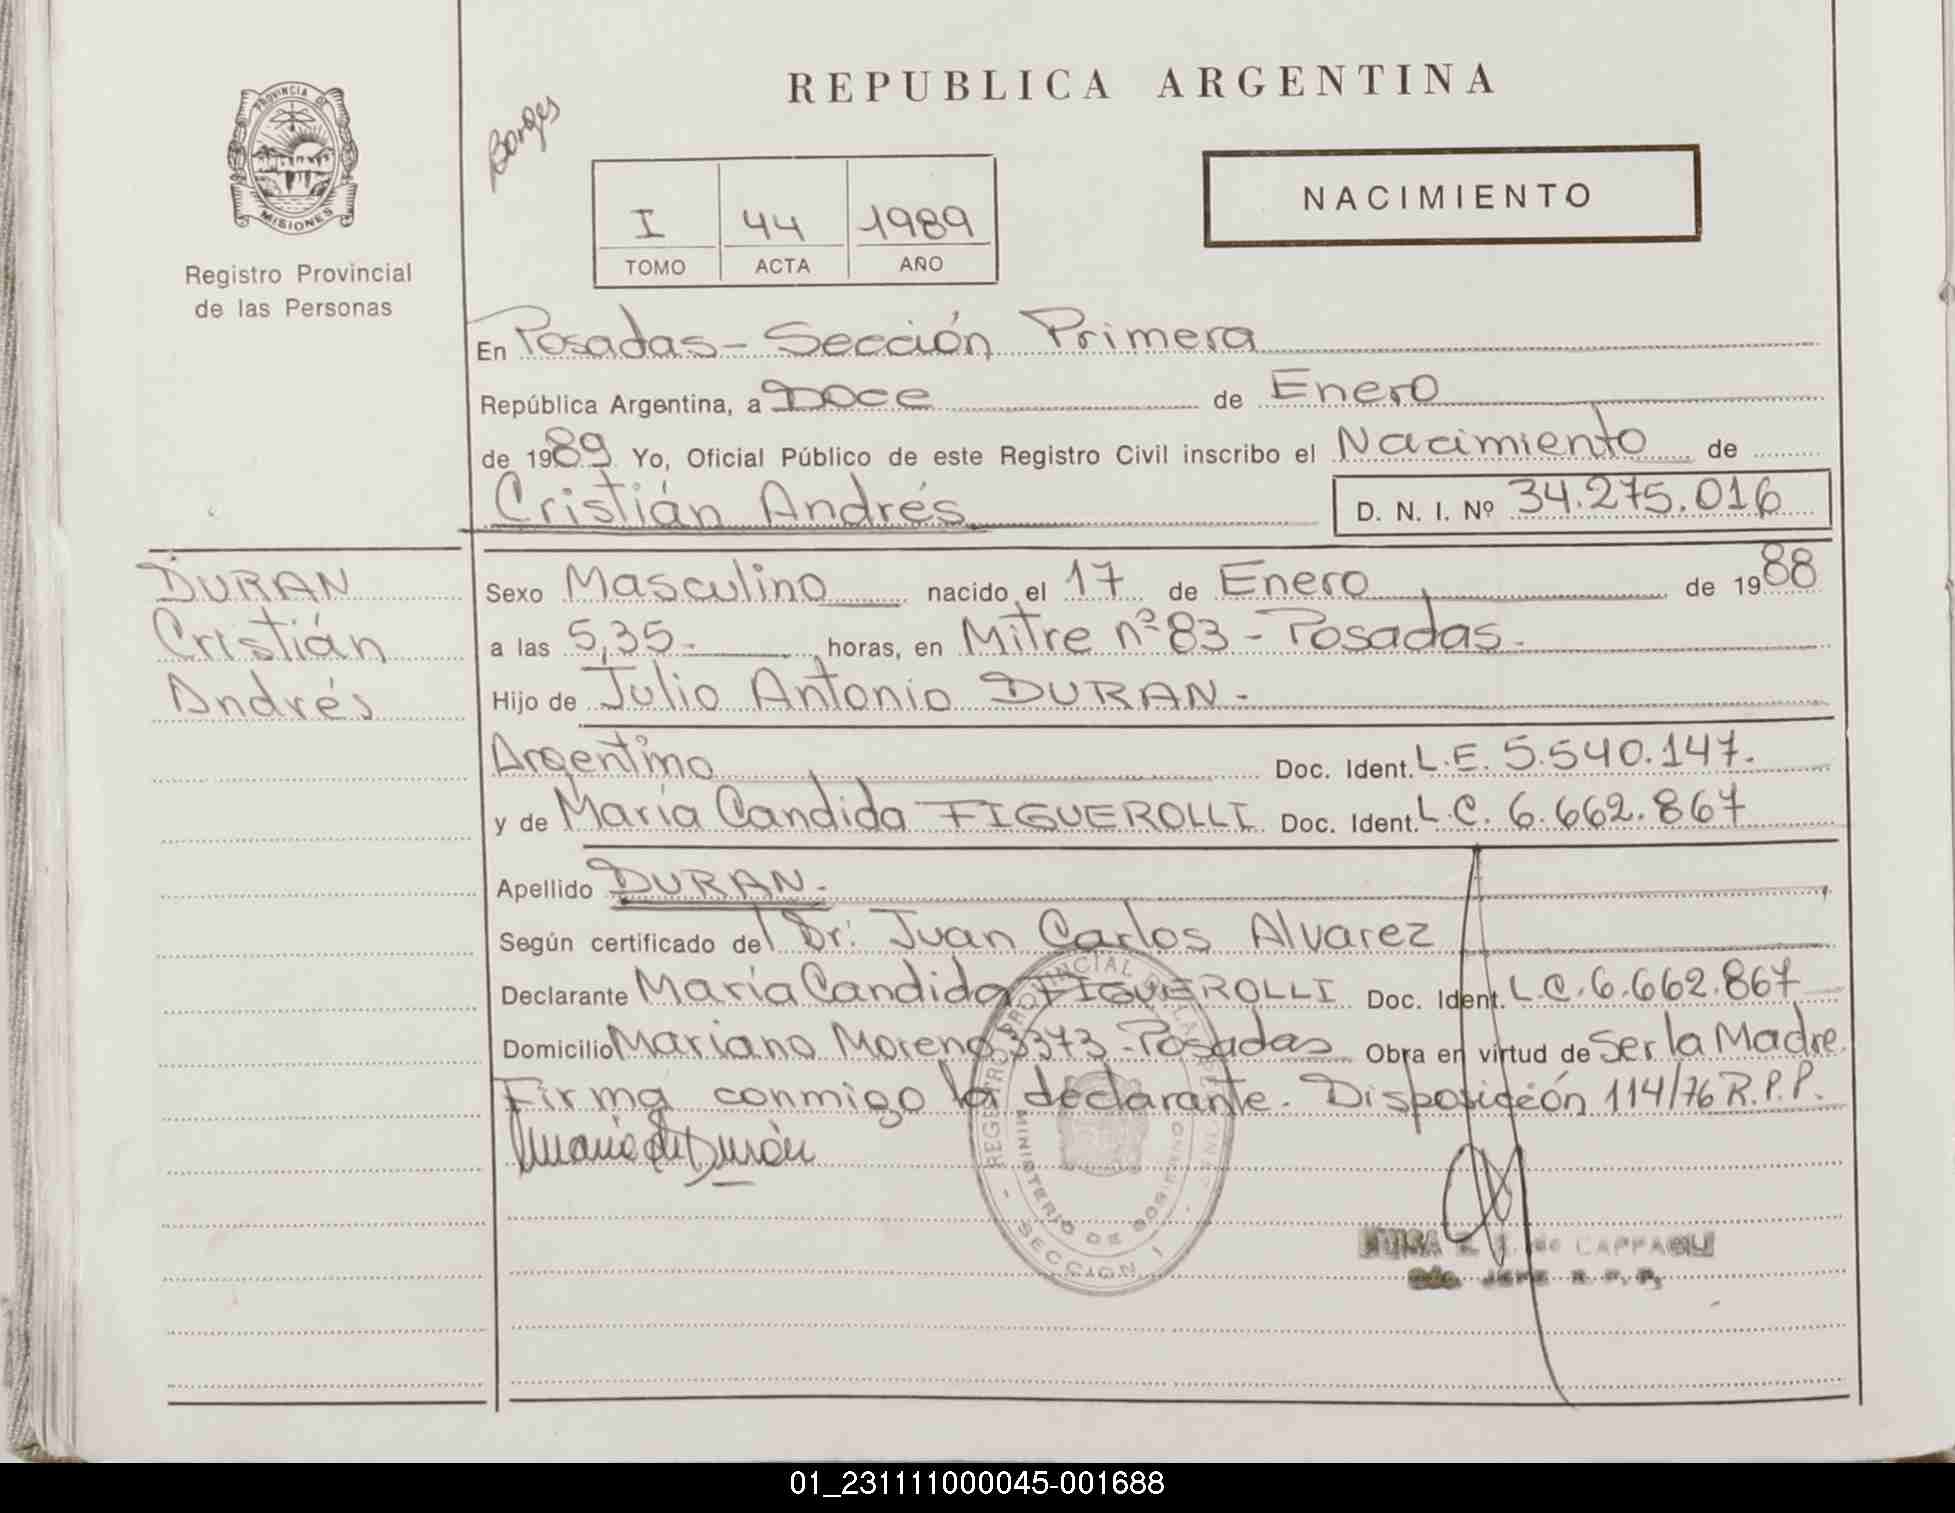 REPUBLICA ARGENTINA
PROVINCIA DE
MISIONES
Registro Provincial
de las Personas
Borges
I 44 1989
TOMO ACTA AÑO
NACIMIENTO
En Posadas - Sección Primera
República Argentina, a Doce de Enero
de 1989 Yo, Oficial Público de este Registro Civil inscribo el Nacimiento de
Cristián Andrés D. N. I. Nº 34.275.016
DURAN
Cristián
Andrés
Sexo Masculino nacido el 17 de Enero de 1988
a las 5,35.- horas, en Mitre nº 83 - Posadas.
Hijo de Julio Antonio DURAN -
Argentino Doc. Ident. L.E. 5.540.147.
y de María Candida FIGUEROLLI Doc. Ident. L.C. 6.662.867
Apellido DURAN.-
Según certificado del Dr. Juan Carlos Alvarez
Declarante María Candida FIGUEROLLI Doc. Ident. L.C. 6.662.867
Domicilio Mariano Moreno 3373 - Posadas Obra en virtud de Ser la Madre.
Firma conmigo la declarante. Disposición 114/76 R.P.P.
María de Durán
REGISTRO PROVINCIAL DE LAS PERSONAS
MINISTERIO DE GOBIERNO
- SECCION I -
de CAPPAGLI
JEFE R. P. P.
01_231111000045-001688